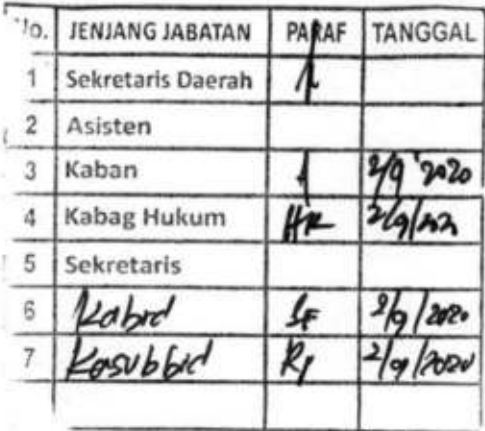 No. JENJANG JABATAN PARAF TANGGAL
1 Sekretaris Daerah
2 Asisten
3 Kaban 2/9 2020
4 Kabag Hukum HK 2/9/2020
5 Sekretaris
6 Kabid 2/9/2020
7 Kasubbid 2/9/2020